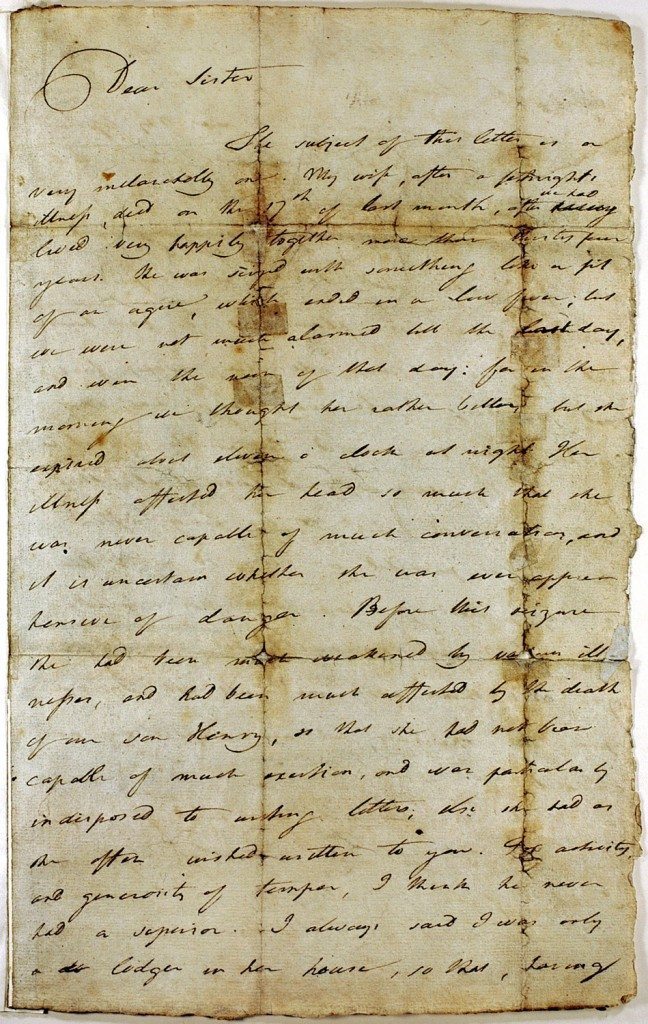 Dear Sister
The subject of this letter is a
very melancholly one. My wife, after a fortnights
illness, died on the 17th of last month, after
we had
lived very happily together more than thirty four
years. She was seized with something like a fit
of an ague, which ended in a low fever; but
we were not much alarmed till the last day,
and even the noon of that day: for in the
morning we thought her rather better, but she
expired about eleven o clock at night. Her
illness affected her head so much that she
was never capable of much conversation, and
it is uncertain whether she was ever appre
hensive of danger. Before this seizure
she had been much weakened by various ill
nesses, and had been much affected by the death
of our son Henry, so that she had not been
capable of much exertion, and was particularly
indisposed to writing letters; else she had as
she often wished written to you. For activity
and generosity of temper, I think she never
had a superior. I always said I was only
a lodger in her house, so that, having